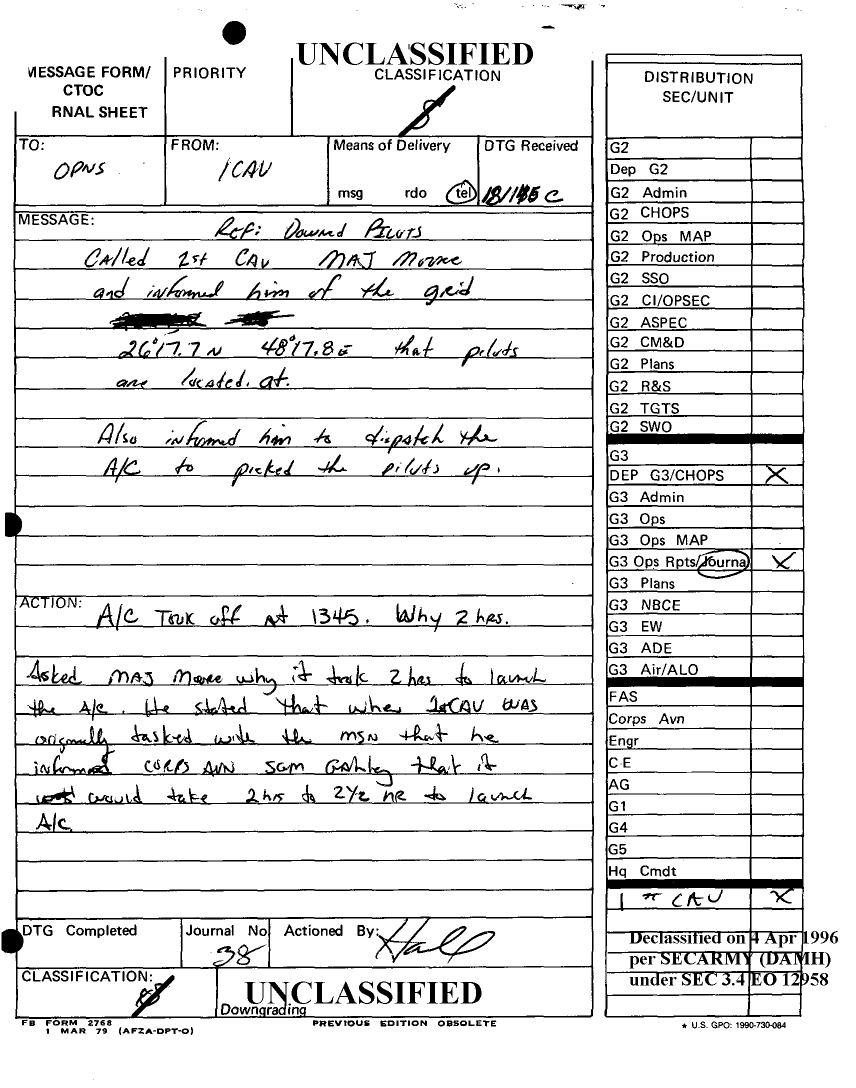 UNCLASSIFIED
MESSAGE FORM/
CTOC
RNAL SHEET
PRIORITY
CLASSIFICATION
TO:
OPNS
FROM:
1CAV
Means of Delivery
msg rdo tel
DTG Received
MESSAGE:
Ref: Downed Pilots
Called 1st CAV MAJ Moore
and informed him of the grid
26°17.7N 48°17.8E that pilots
are located. at.
Also informed him to dispatch the
A/C to picked the pilots up.
ACTION:
A/C Took off at 1345. Why 2 hrs.
Asked MAJ Moore why it took 2 hrs to launch
the A/C. He stated that when 1st CAV WAS
originally tasked with the MSN that he
informed CORPS AVN SGM that it
would take 2hrs to 2 1/2 HR to launch
A/C
DTG Completed
Journal No
38
Actioned By:
Hall
CLASSIFICATION:
UNCLASSIFIED
Downgrading
FB FORM 2768
1 MAR 79 (AFZA-DPT-O)
PREVIOUS EDITION OBSOLETE
DISTRIBUTION
SEC/UNIT
G2
Dep G2
G2 Admin
G2 CHOPS
G2 Ops MAP
G2 Production
G2 SSO
G2 CI/OPSEC
G2 ASPEC
G2 CM&D
G2 Plans
G2 R&S
G2 TGTS
G2 SWO
G3
DEP G3/CHOPS X
G3 Admin
G3 Ops
G3 Ops MAP
G3 Ops Rpts/Journal X
G3 Plans
G3 NBCE
G3 EW
G3 ADE
G3 Air/ALO
FAS
Corps Avn
Engr
CE
AG
G1
G4
G5
Hq Cmdt
1st CAV X
Declassified on 4 Apr 1996
per SECARMY (DAMH)
under SEC 3.4 EO 12958
★ U.S. GPO: 1990-730-084